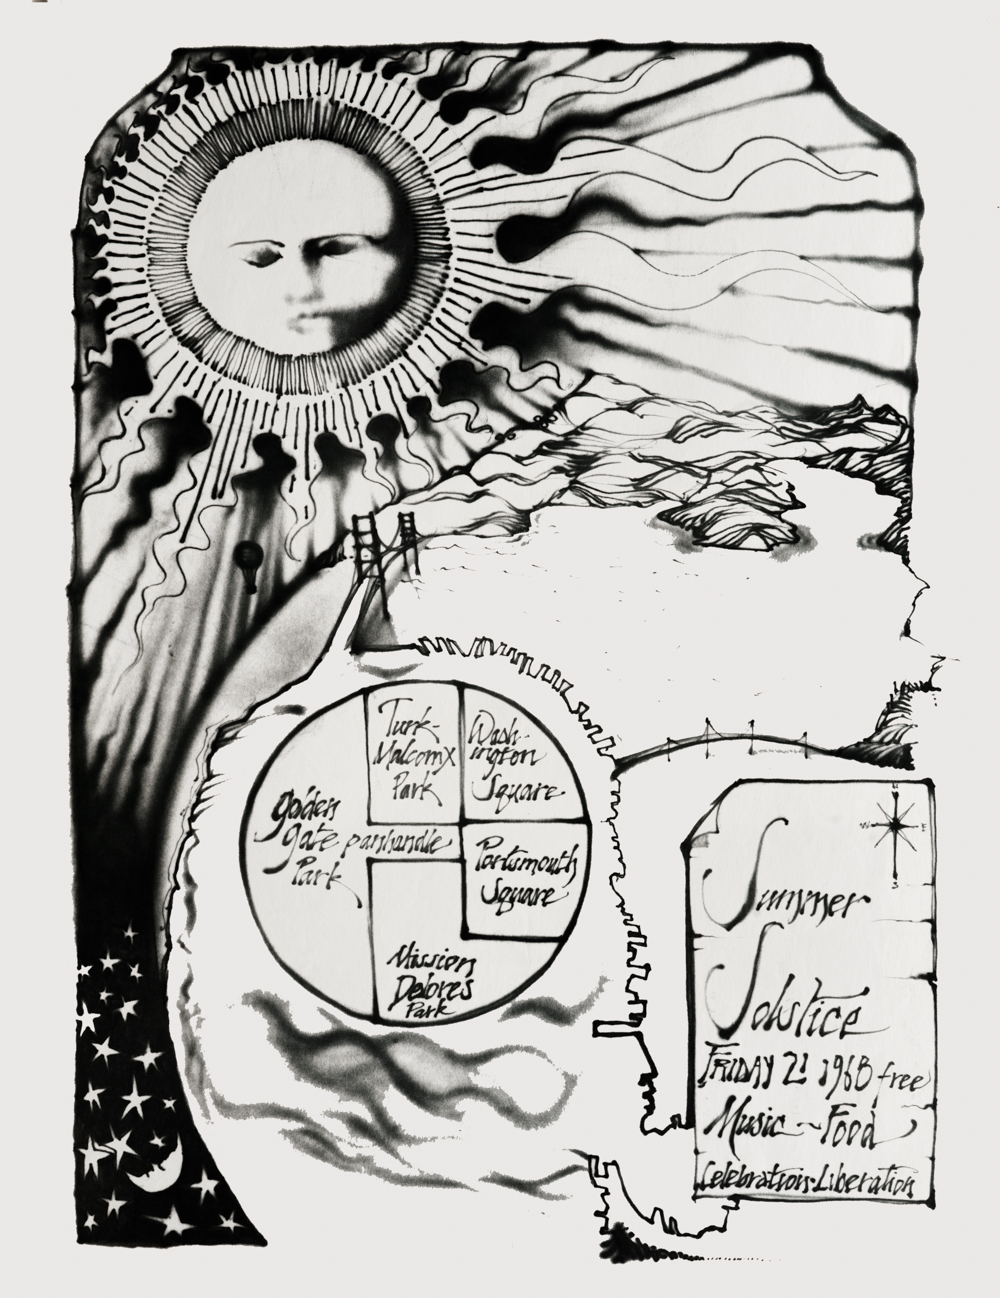 Turk-
Malcom X
Park
Wash-
ington
Square
golden
gate panhandle
Park
Portsmouth
Square
Mission
Delores
Park
W E
S
Summer
Solstice
FRIDAY 21 1968 free
Music ~ Food
Celebration·Liberation